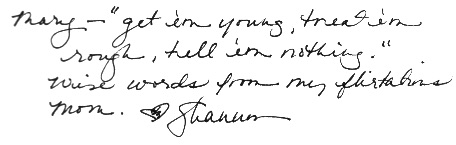 Mary – "get 'em young, treat 'em
rough, tell 'em nothing."
Wise words from my flirtatious
mom. Shannon